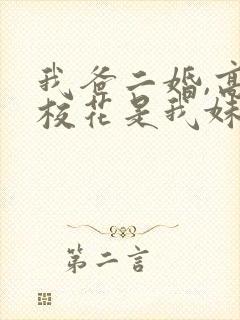 我爸二婚,高
校花是我妹
第二言